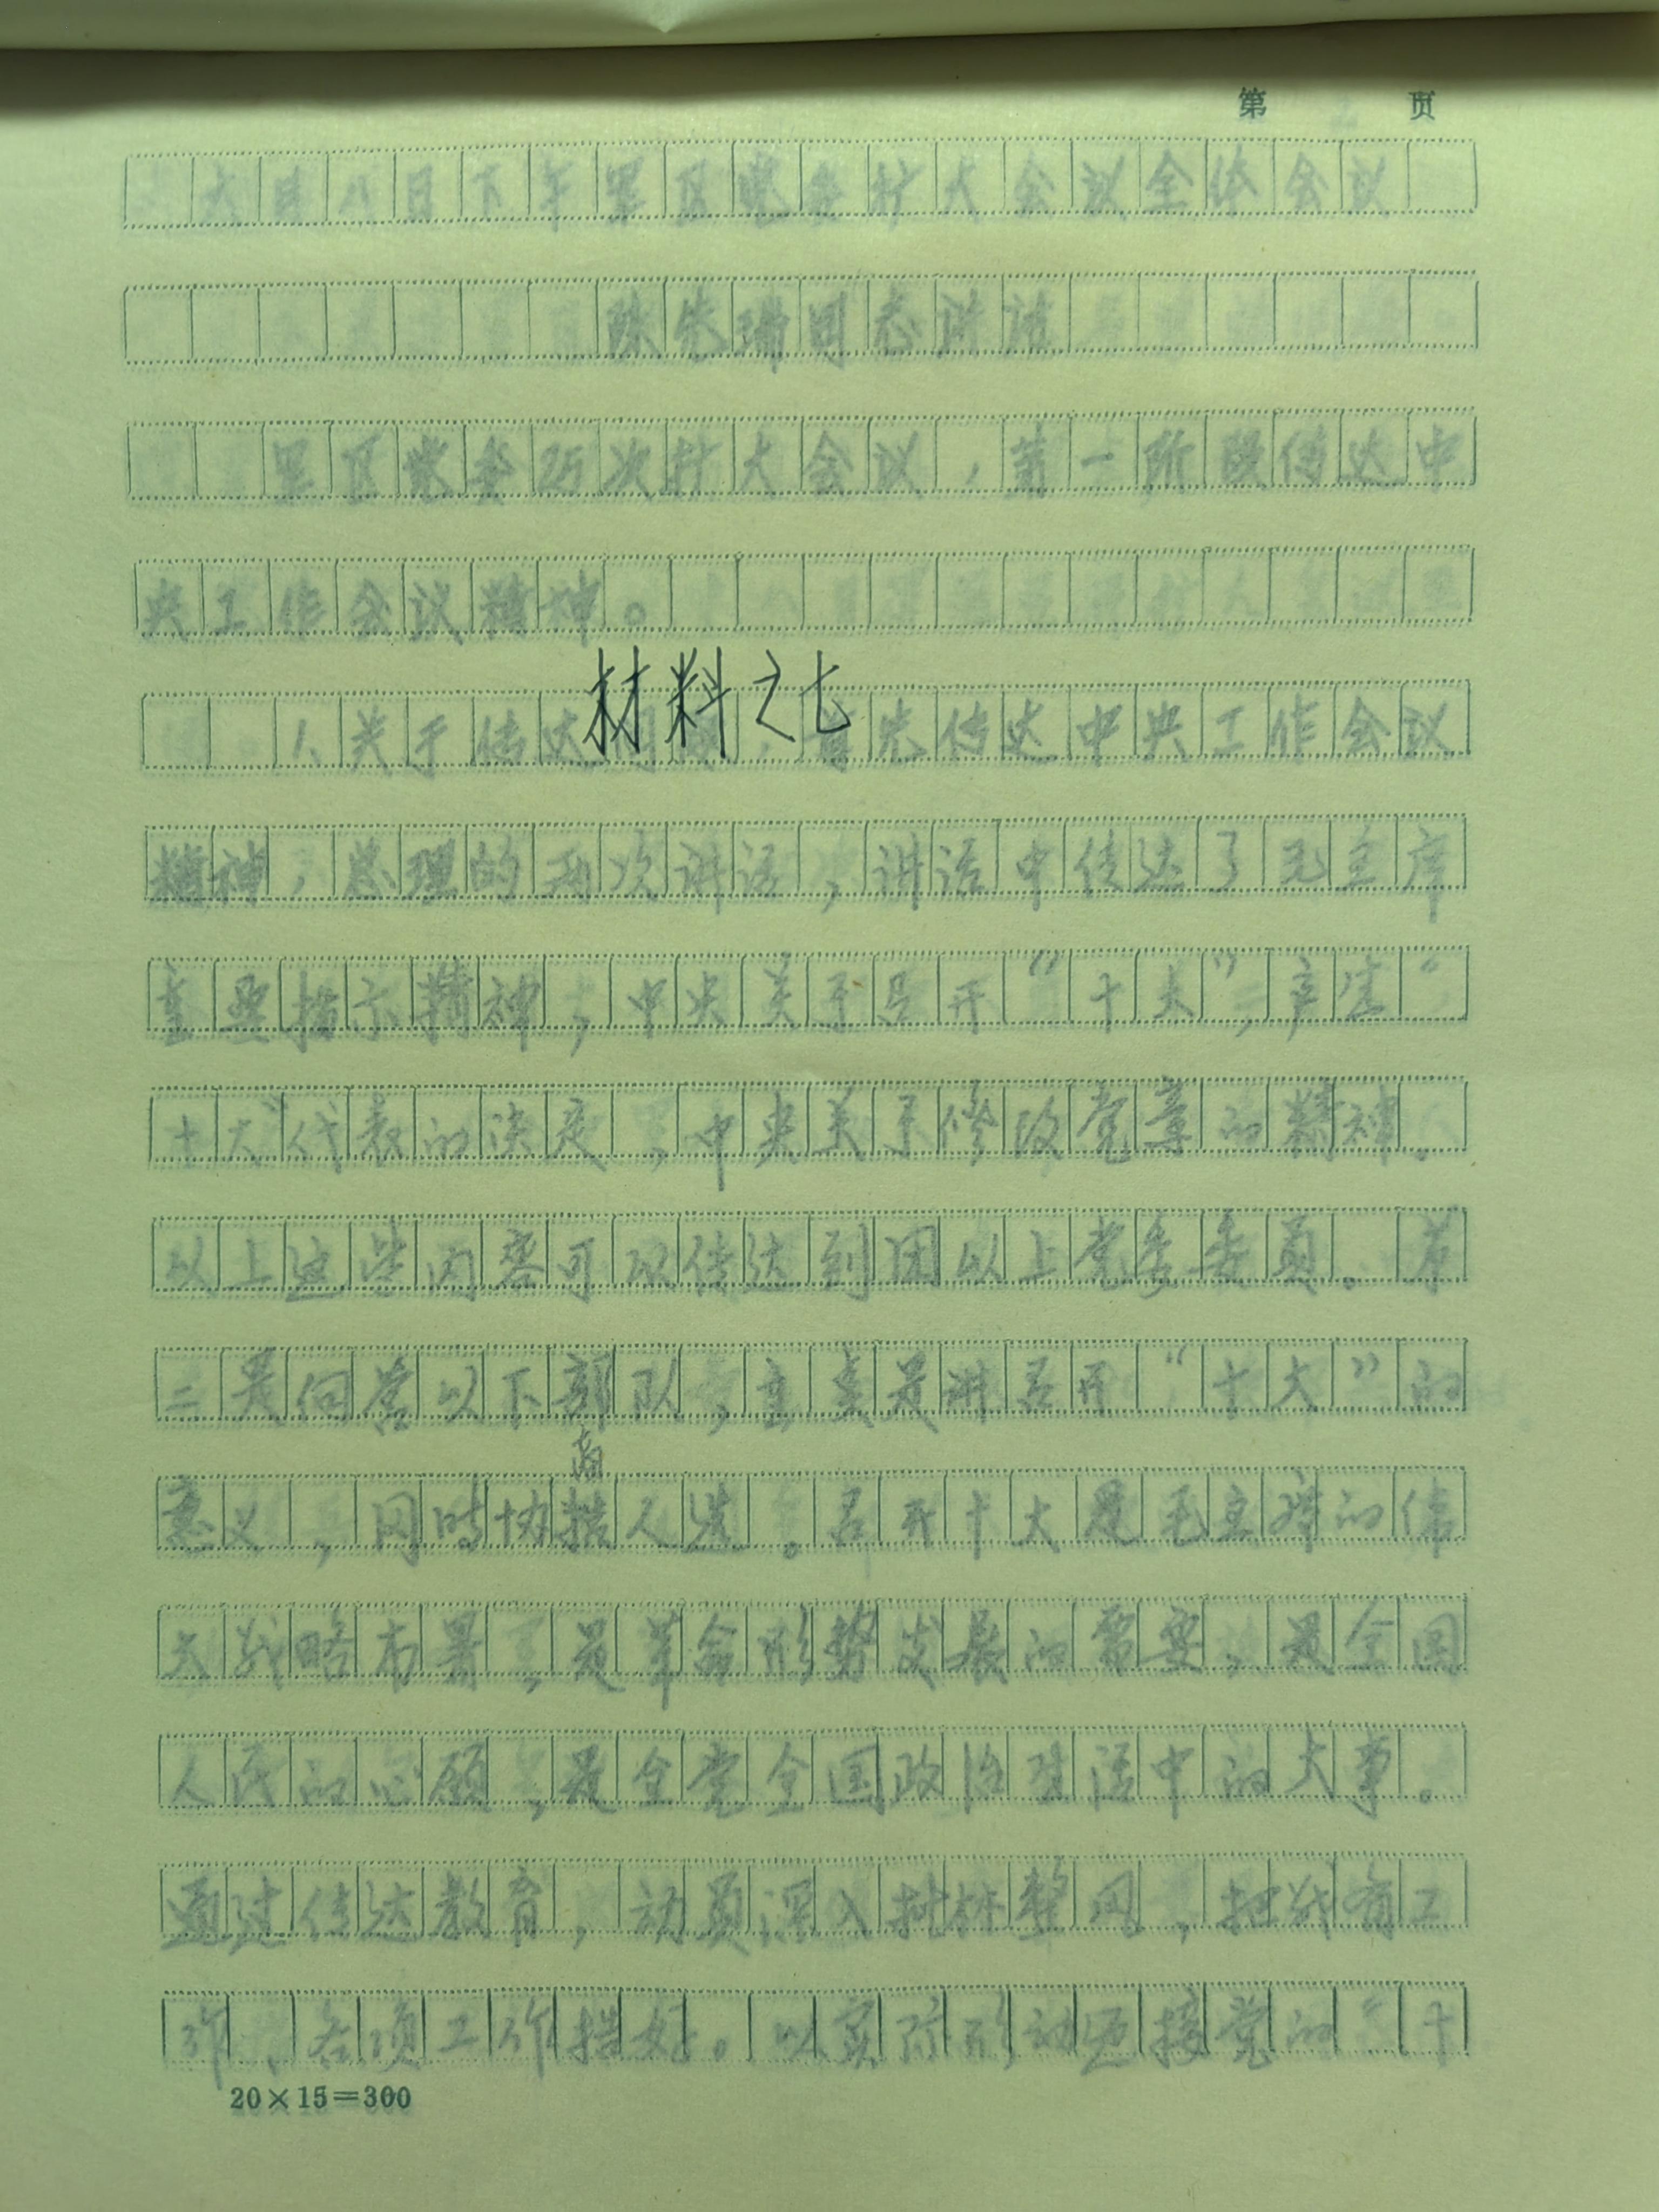 第 页
六月八日下午军区党委扩大会议全体会议
陈先瑞同志讲话
军区党委25次扩大会议，第一阶段传达中
央工作会议精神。
材料之七
1、关于传达问题，首先传达中央工作会议
精神，总理的两次讲话，讲话中传达了毛主席
重要指示精神，中央关于召开“十大”，产生“
十大”代表的决定，中央关于修改党章的精神。
以上这些内容可以传达到团以上党委委员。第
二是向营以下部队，主要是讲召开“十大”的
意义，同时协商人选。召开十大是毛主席的伟
大战略布署，是革命形势发展的需要，是全国
人民的心愿，是全党全国政治生活中的大事。
通过传达教育，动员深入批林整风，把战备工
作、各项工作搞好。以实际行动迎接党的“十
20×15=300